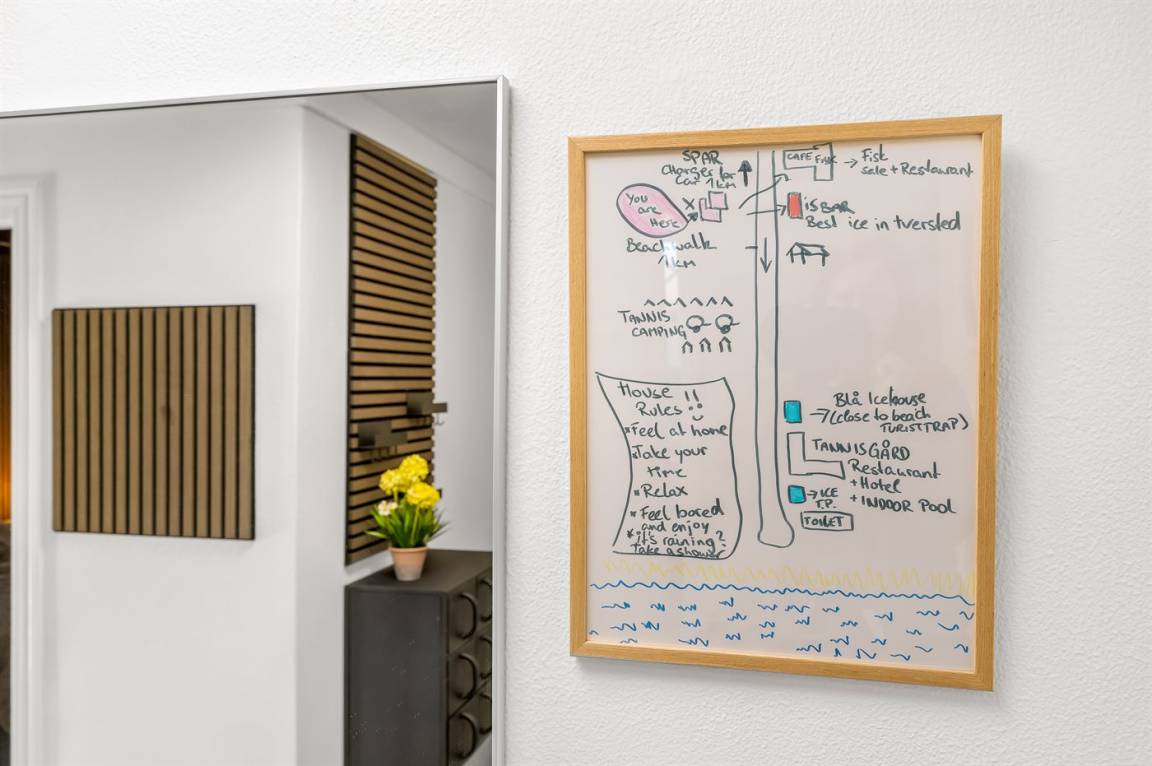 SPAR
Charger for
Car 1km
CAFE FISK
Fisk
Sale + Restaurant
You
are
Here
X
ISBAR
Best ice in tversted
Beachwalk
1km
TANNIS
CAMPING
House
Rules !!
*Feel at home
*Take your
time
*Relax
*Feel bored
and enjoy
*it's raining?
Take a shower
Blå Icehouse
(close to beach
TURISTTRAP)
TANNISGÅRD
Restaurant
+ Hotel
+ INDOOR POOL
ICE
T.P.
TOILET